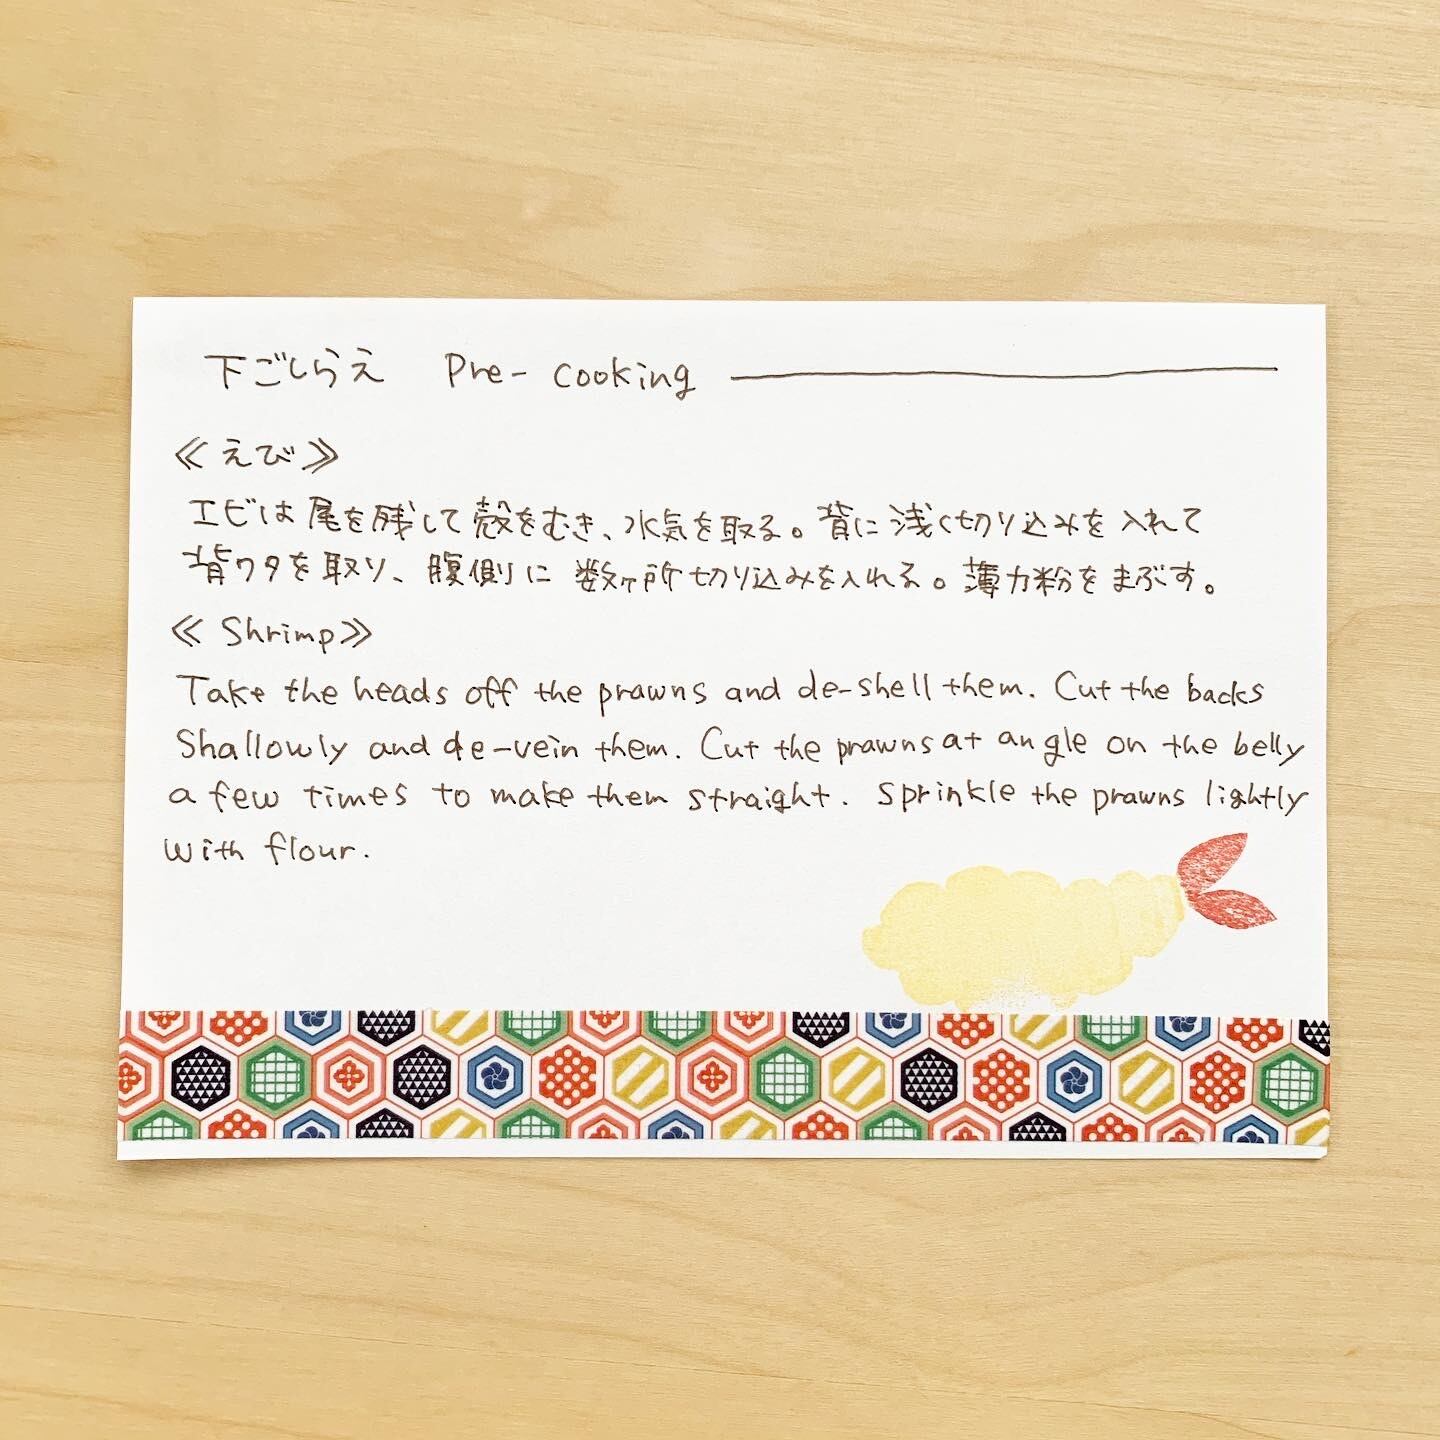 下ごしらえ Pre-cooking
≪えび≫
エビは尾を残して殻をむき、水気を取る。背に浅く切り込みを入れて
背ワタを取り、腹側に数ヶ所切り込みを入れる。薄力粉をまぶす。
≪Shrimp≫
Take the heads off the prawns and de-shell them. Cut the backs
Shallowly and de-vein them. Cut the prawns at an gle on the belly
a few times to make them straight. Sprinkle the prawns lightly
with flour.